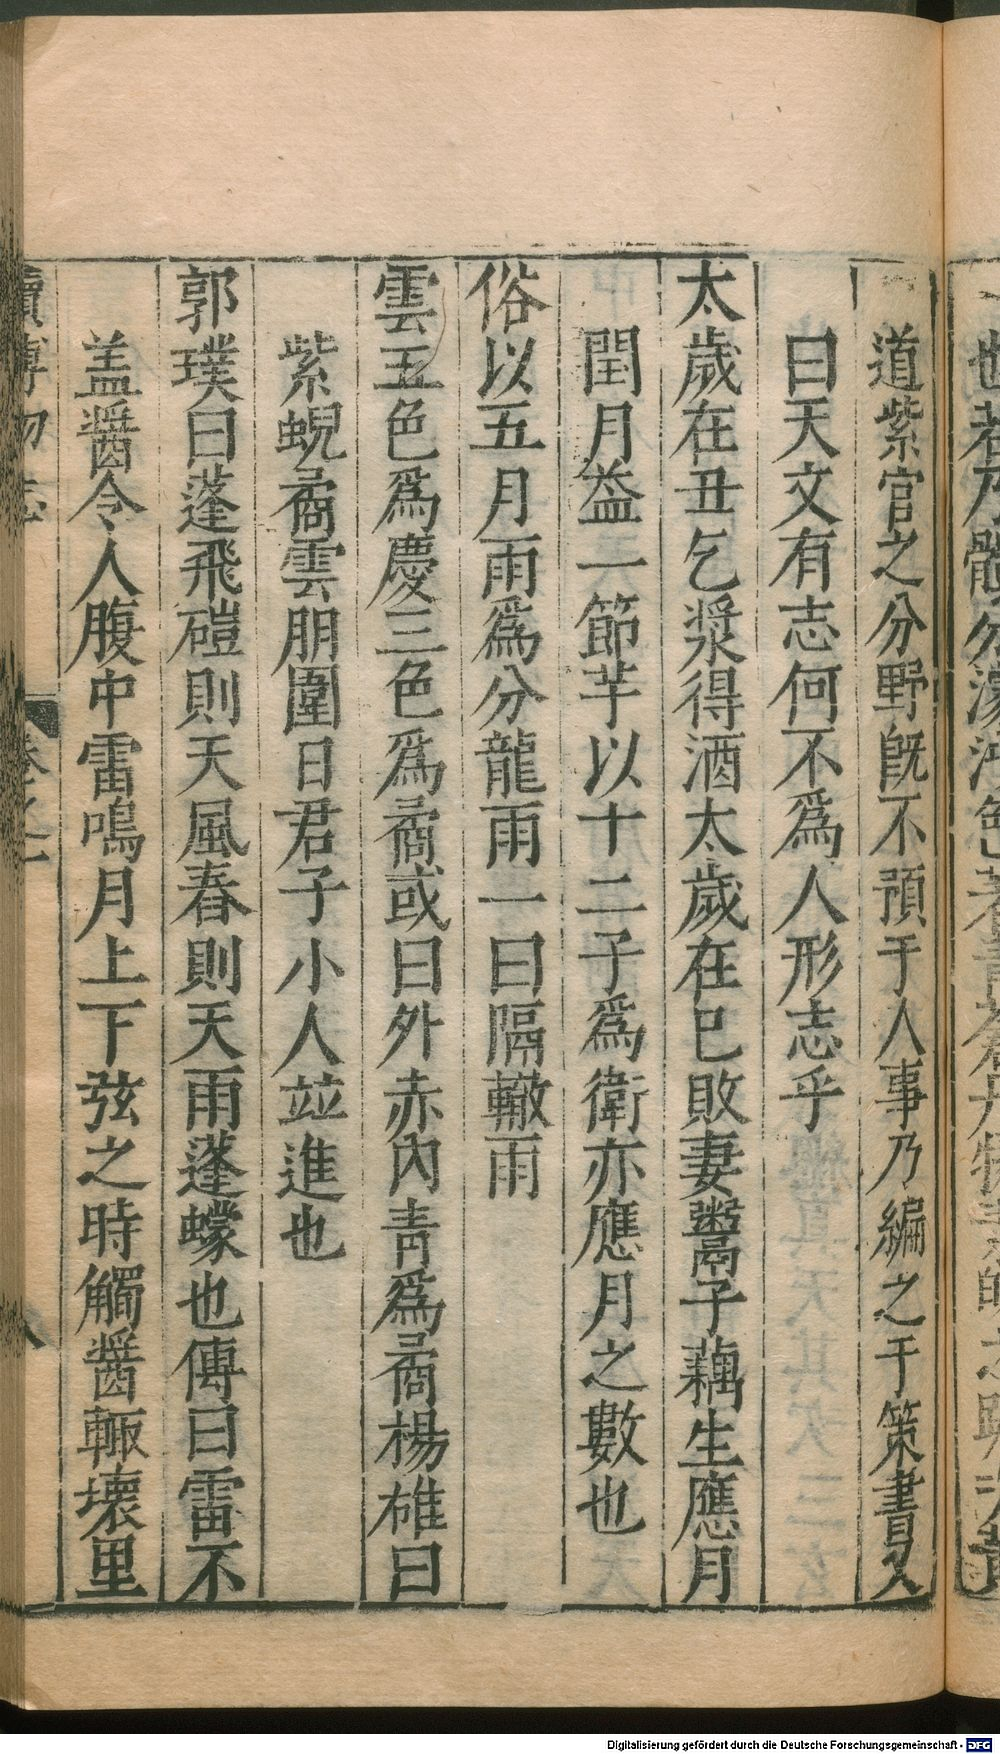 道紫官之分野旣不預于人事乃編之于策書又
曰天文有志何不爲人形志乎
太歲在丑乞漿得酒太歲在巳敗妻鬻子藕生應月
閏月益一節芋以十二子爲衛亦應月之數也
俗以五月雨爲分龍雨一曰隔轍雨
雲五色爲慶三色爲矞或曰外赤內青爲矞楊雄曰
紫蜺矞雲朋圍日君子小人竝進也
郭璞曰蓬飛磑則天風舂則天雨蓬蠓也傳曰雷不
盖醬令人腹中雷鳴月上下弦之時觸醬輙壞里
續博物志
卷之一
八
Digitalisierung gefördert durch die Deutsche Forschungsgemeinschaft - DFG